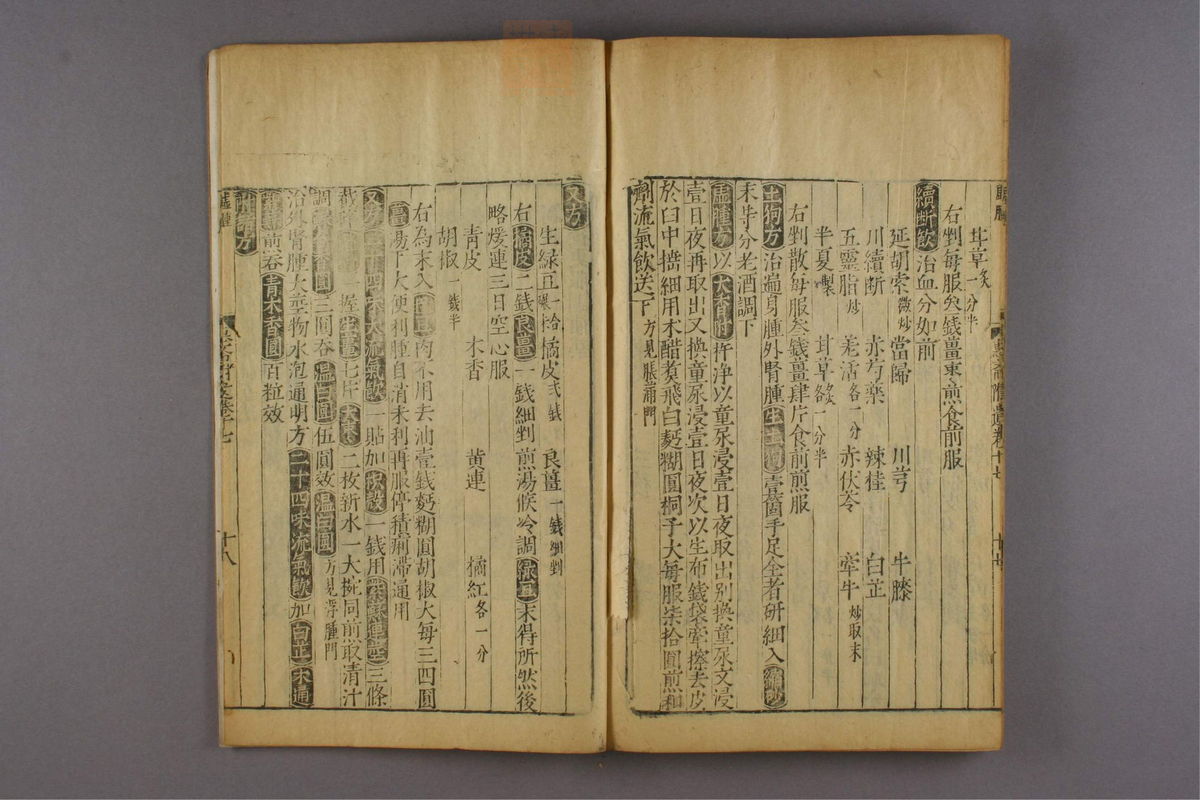 甘草炙一分半
右剉每服叁錢薑棗煎食前服
續斷飲治血分如前
延胡索微炒 當歸 川芎 牛膝
川續斷 赤芍藥 辣桂 白芷
五靈脂炒 羌活各一分 赤伏苓 牽牛炒取末
半夏製 甘草炙各一分半
右剉散每服叁錢薑肆片食前煎服
土狗方治遍身腫外腎腫生土狗壹箇手足全者研細入縮砂
末等分老酒調下
虛腫方以大香附杵淨以童尿浸壹日夜取出別換童尿又浸
壹日夜再取出又換童尿浸壹日夜次以生布錢袋牽擦去皮
於臼中擣細用米醋煮飛白麪糊圓桐子大每服柒拾圓煎和
劑流氣飲送下方見脹滿門
十七
又方
生綠豆一拾 橘皮弍錢 良薑一錢細剉
右橘皮二錢良薑一錢細剉煎湯候冷調綠豆末得所然後
略煖連三日空心服
青皮 木香 黃連 橘紅各一分
胡椒一錢半
右為末入肉不用去油壹錢麪糊圓胡椒大每三四圓
薑湯下大便利腫自消未利再服停積痢滯通用
又方二十四味流氣飲一貼加枳殼一錢用紫蘇連莖三條
一握生薑七片大棗二枚新水一大椀同前取清汁
調三圓吞溫白圓伍圓效溫白圓方見浮腫門
治外腎腫大莖物水泡通明方二十四味流氣飲加白芷木通
煎吞青木香圓百粒效
附諸方
十八